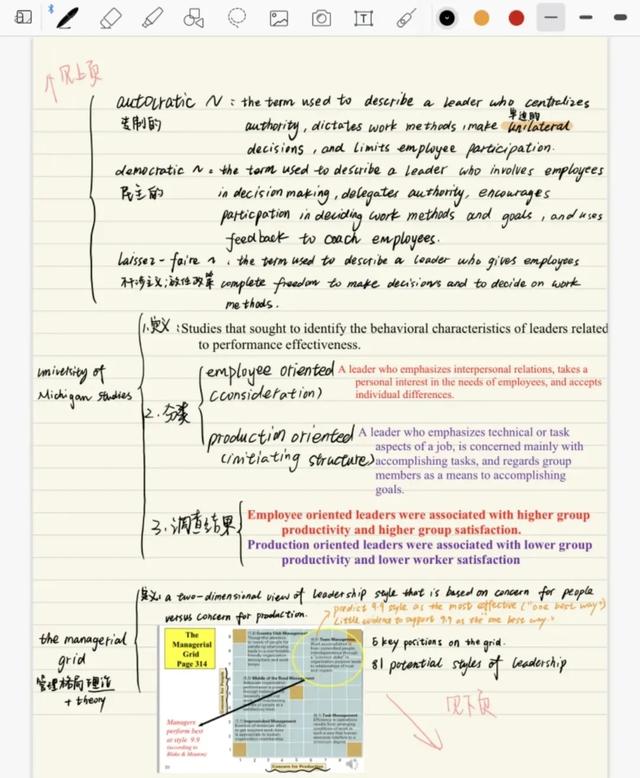 ↑见上页
autocratic N : the term used to describe a leader who centralizes
专制的 authority, dictates work methods, make unilateral
单边的
decisions, and limits employee participation.
democratic n : the term used to describe a leader who involves employees
民主的 in decision making, delegates authority, encourages
particpation in deciding work methods and goals, and uses
feedback to coach employees.
laissez-faire n : the term used to describe a leader who gives employees
不干涉主义;放任政策 complete freedom to make decisions and to decide on work
methods.
1.定义:Studies that sought to identify the behavioral characteristics of leaders related
to performance effectiveness.
university of
Michigan studies
2.分类
employee oriented
(consideration)
A leader who emphasizes interpersonal relations, takes a
personal interest in the needs of employees, and accepts
individual differences.
production oriented
(initiating structure)
A leader who emphasizes technical or task
aspects of a job, is concerned mainly with
accomplishing tasks, and regards group
members as a means to accomplishing
goals.
3.调查结果
Employee oriented leaders were associated with higher group
productivity and higher group satisfaction.
Production oriented leaders were associated with lower group
productivity and lower worker satisfaction
定义: a two-dimensional view of leadership style that is based on concern for people
versus concern for production.
predict 9.9 style as the most effective ("one best way")
Little evidence to support 9.9 as the "one best way."
the managerial
grid
管理格局理论
+ theory
The
Managerial
Grid
Page 314
Managers
perform best
at style 9.9
(according to
Blake & Mouton)
Concern for People
Concern for Production
5 key positions on the grid.
81 potential styles of leadership
见下页